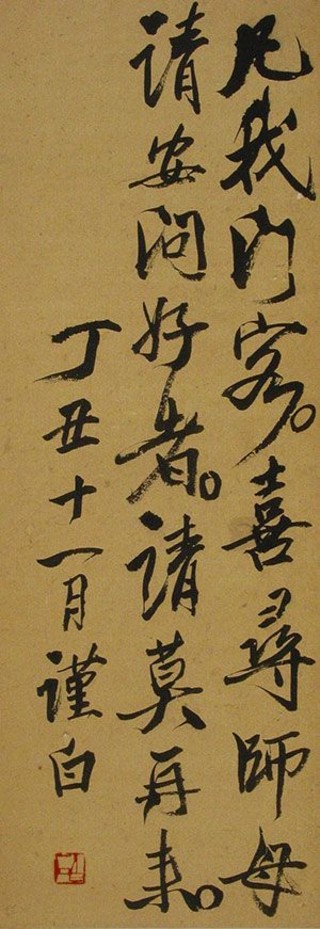 凡我門客。喜尋師母
請安問好者。請莫再来。
丁丑十一月謹白